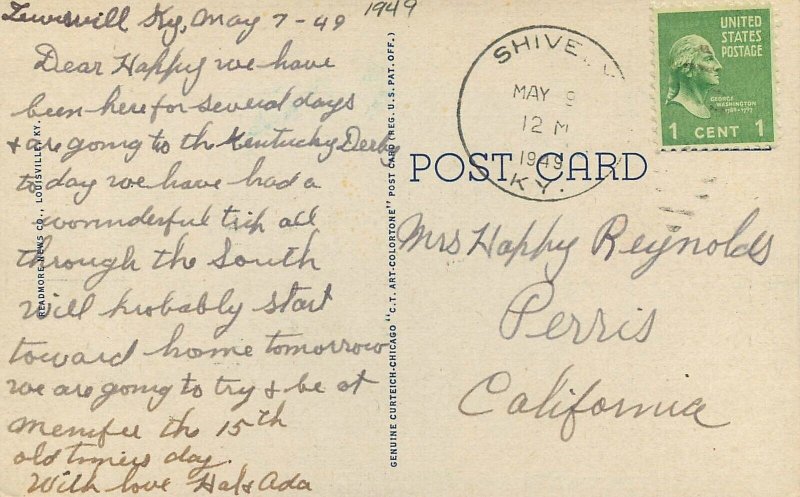 Luisvill Ky, May 7-49
1949
Dear Happy we have
been here for several days
& are going to th Kentucky Derby
to day we have had a
wonnderful trip all
through the South
will probably start
toward home tomorrow
we are going to try & be at
Menifee the 15th
old timers day.
With love Hal & Ada
READMORE NEWS CO., LOUISVILLE, KY.
GENUINE CURTEICH-CHICAGO "C.T. ART-COLORTONE" POST CARD (REG. U.S. PAT. OFF.)
SHIVE
MAY 9
12 M
1949
KY.
UNITED
STATES
POSTAGE
GEORGE
WASHINGTON
1789-1797
1 CENT 1
POST CARD
Mrs Happy Reynolds
Perris
California